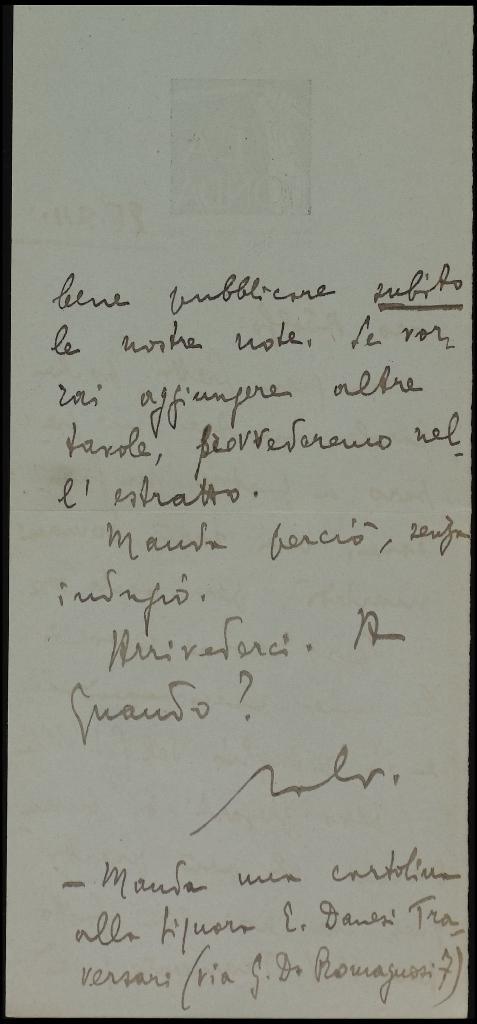 bene pubblicare subito
le nostre note. Se vor-
rai aggiungere altre
tavole, provvederemo nel-
l'estratto.
Manda perciò, senza
indugiò.
Arrivederci. A
quando?
– Manda una cartolina
alla Signora E. Danesi Tra-
versari (via G. D. Romagnosi 7)